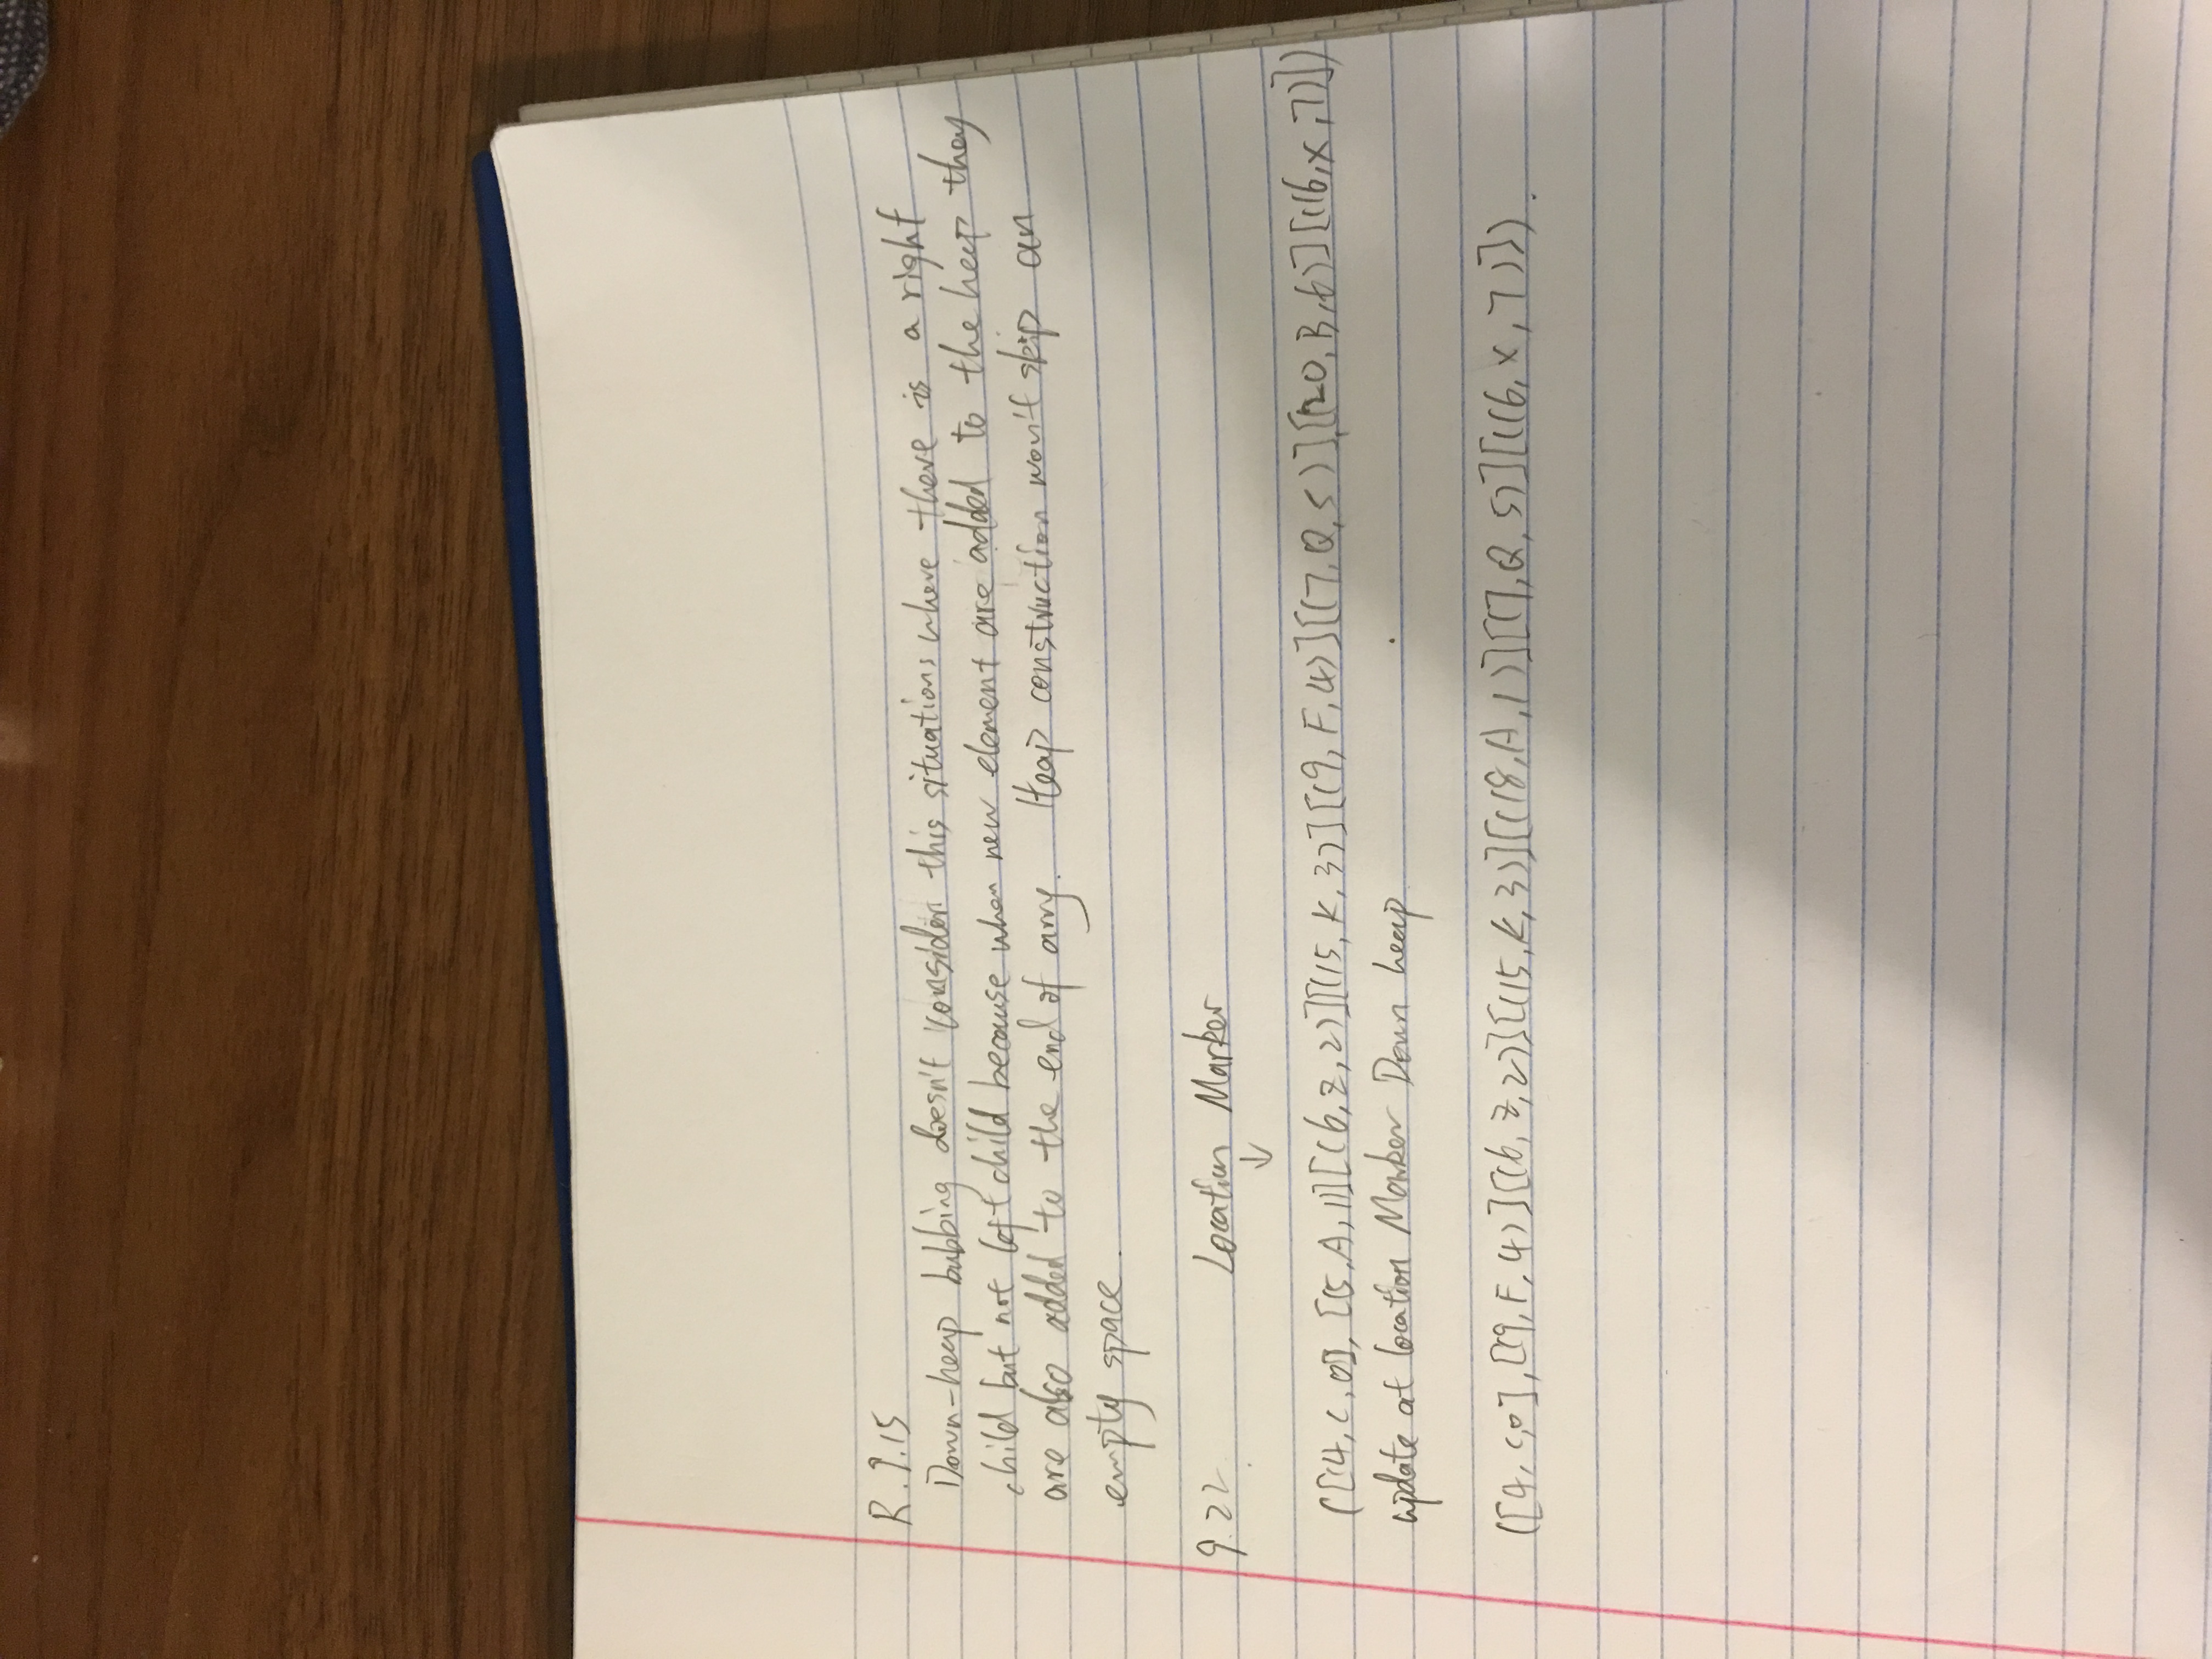 R.9.15
Down-heap bubbing doesn't consider this situations where there is a right
child but not left child because when new element are added to the heap they
are also added to the end of arry. Heap construction won't skip an
empty space.
9.22 Location Marker
↓
([(4,C,0)], [(5,A,1)][(6,Z,2)][(15,K,3)][(9,F,4)][(7,Q,5)],[(20,B,6)][(16,X,7)])
update at location Marker Down heap
([4,C,0],[(9,F,4)][(6,Z,2)][(15,K,3)][(18,A,1)][(7,Q,5)][(16,X,7)]).